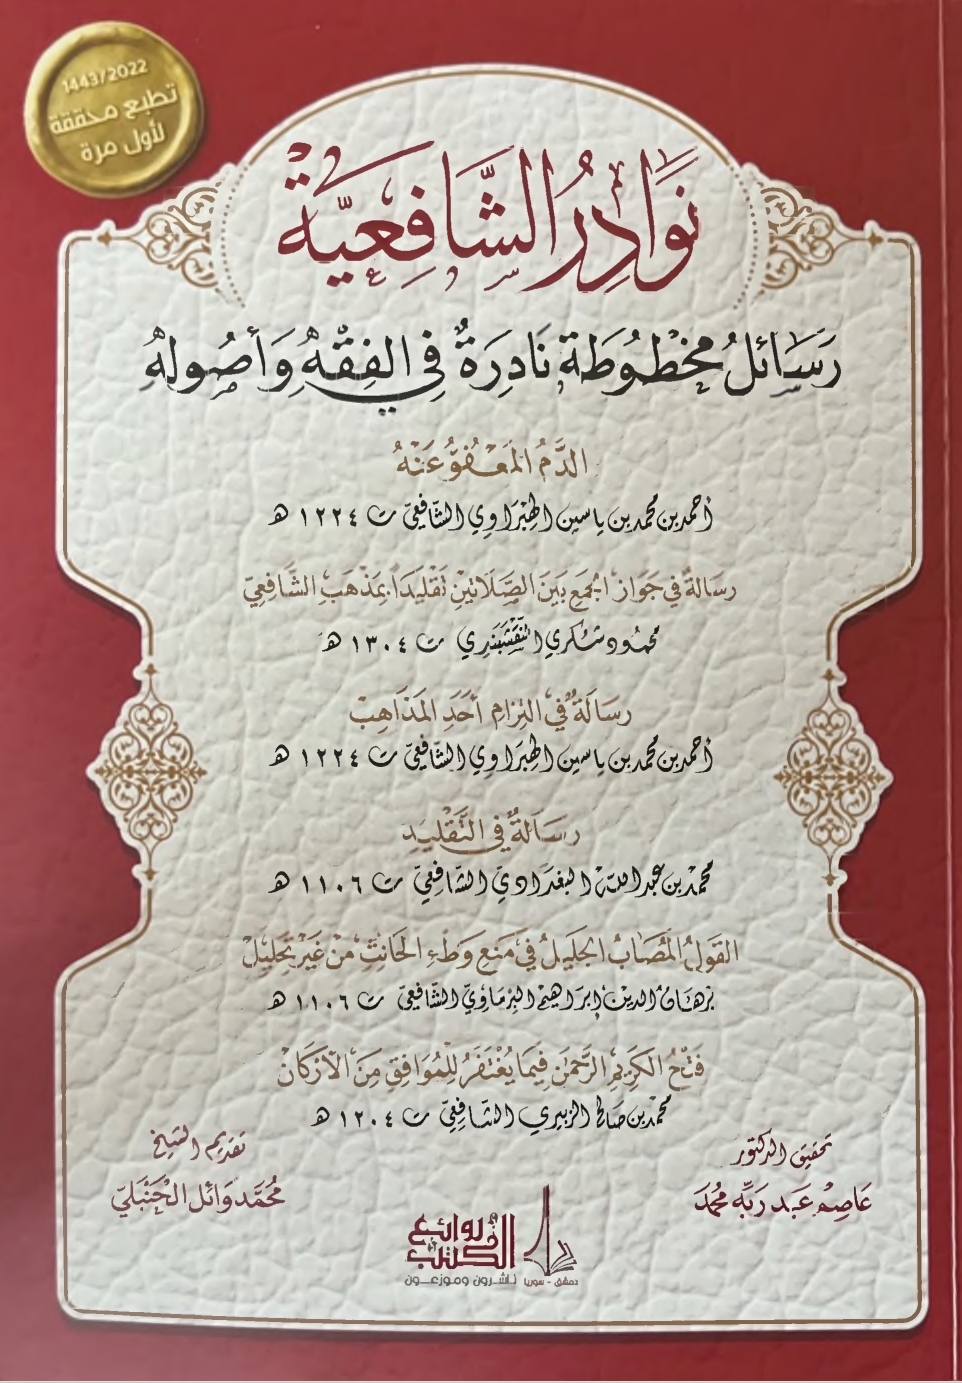 1443/2022
تطبع محققة
لأول مرة
نَوَادِرُ الشَّافِعِيَّة
رَسَائلُ مَخْطُوطَة نَادِرَةٌ فِي الفِقْهِ وَأُصُولِهِ
الدَّمُ المَعْفُوُّ عَنْهُ
أحمد بن محمد بن ياسين الهِبْرَاوِي الشَّافِعِيّ ت ١٢٢٤ هـ
رسَالَة في جَوَاز الجَمْعِ بَيْنَ الصَّلَاتَيْنِ تَقْلِيدًا بمَذْهَبِ الشَّافِعِيّ
محمُود شكري النَّقْشَبَنْدِي ت ١٣٠٤ هـ
رسَالَةٌ في التِزامِ أحَدِ المَذَاهِبْ
أحمد بن محمد بن ياسين الهِبْرَاوِي الشَّافِعِيّ ت ١٢٢٤ هـ
رسَالَةٌ في التَّقْلِيدِ
محمَّد بن عبد اللّه البَغْدَادِيّ الشَّافِعِيّ ت ١١٠٦ هـ
القَولُ المُصَابُ الجَلِيلُ فِي مَنعِ وَطْءِ الحَانِثِ مِنْ غَيْرِ تَحْلِيلْ
بُرهَانُ الدين إبرَاهيم البِرْمَاوِيّ الشَّافعيّ ت ١١٠٦ هـ
فَتْحُ الكَرِيمِ الرَّحمٰنِ فِيمَا يُغْتَفَرُ لِلْمُوَافِقِ مِنَ الأَرْكَانْ
محمَّد بن صَالح الزبيري الشَّافِعِيّ ت ١٢٠٤ هـ
تحقيق الدكتور
عَاصِم عَبد رَبِّه مُحمَّد
تقديم الشيخ
مُحمَّد وَائل الحَنْبَليّ
روائع
الكتب
ناشرون وموزعون
دمشق - سوريا